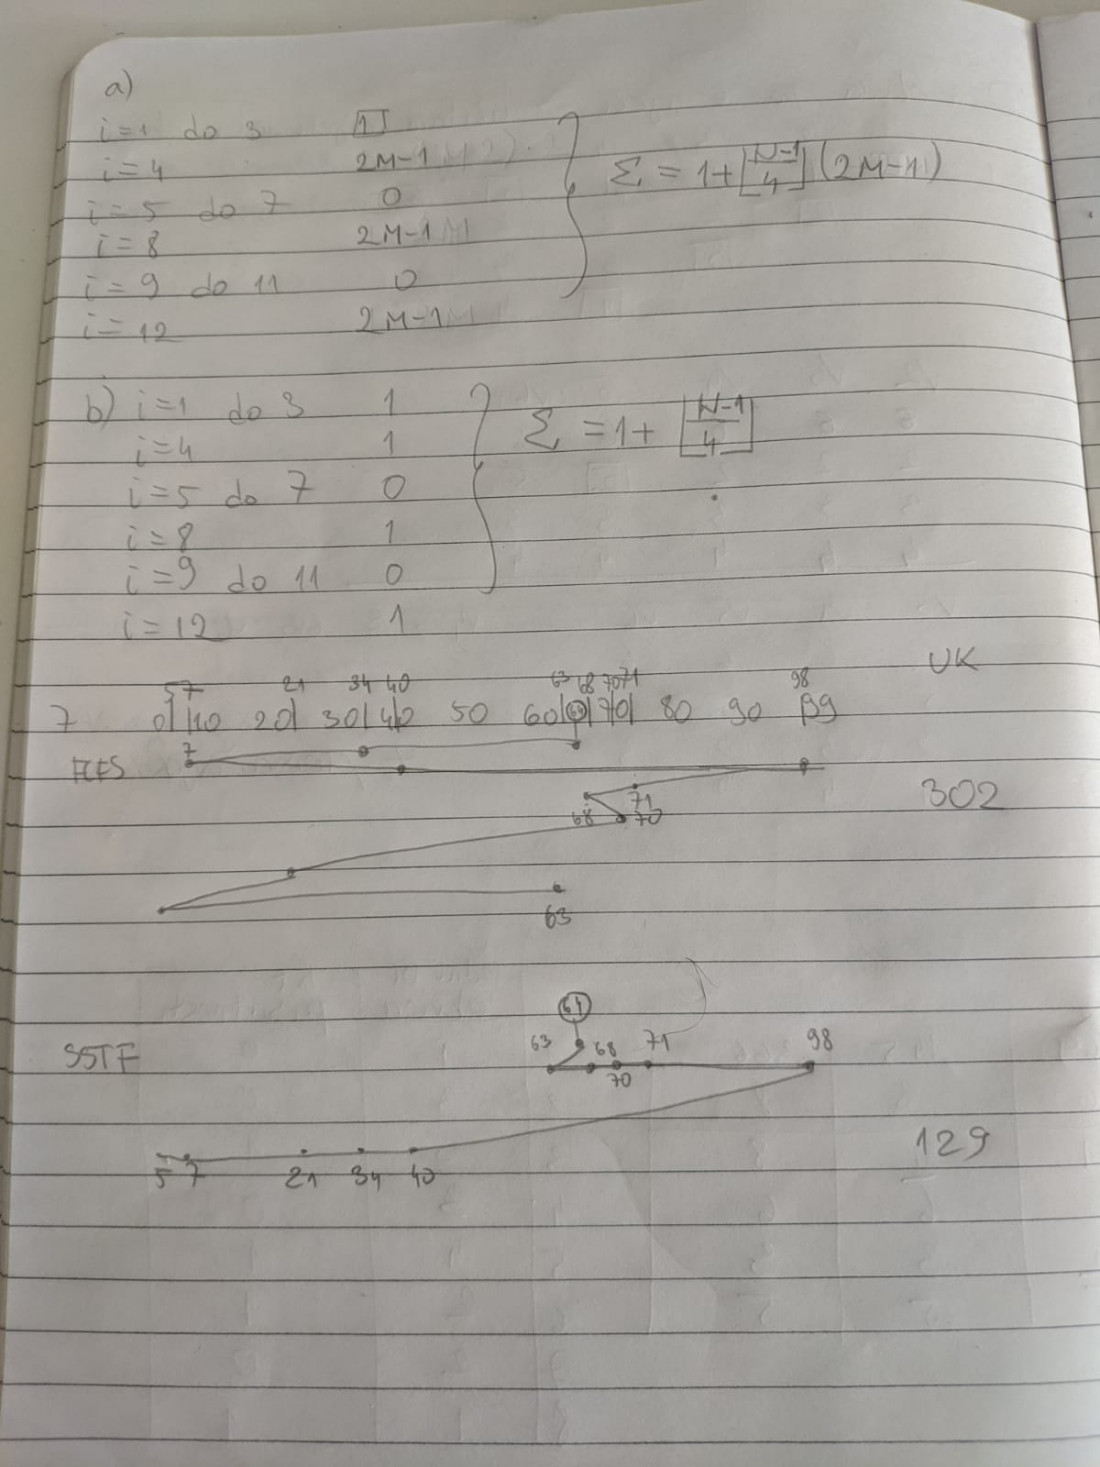 a)
i=1 do 3 1
i=4 2M-1
i=5 do 7 0
i=8 2M-1
i=9 do 11 0
i=12 2M-1
Σ = 1+⌊N-1/4⌋(2M-1)
b) i=1 do 3 1
i=4 1
i=5 do 7 0
i=8 1
i=9 do 11 0
i=12 1
Σ = 1+ ⌊N-1/4⌋
UK
57 21 34 40 63 68 7071 98
7 0 10 20 30 40 50 60 70 80 90 99
7
FCFS
302
71
68 70
63
64
SSTF 63 68 71 98
70
129
5 7 21 34 40